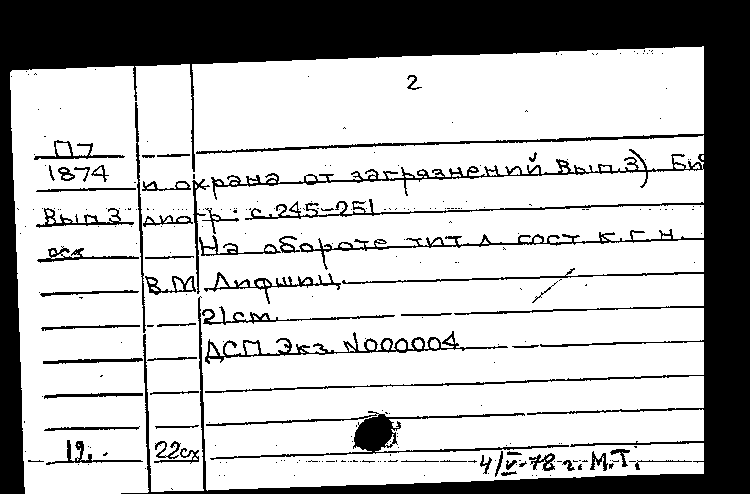 2
П7
1874 и охрана от загрязнений Вып.3) Биб
Вып 3 лиогр: с.245-251
оск На обороте тит л сост к.г.н.
В.М Лифшиц.
21см.
ДСП Экз. N000004
19. 22сх
4/V-78 г. М.Т.